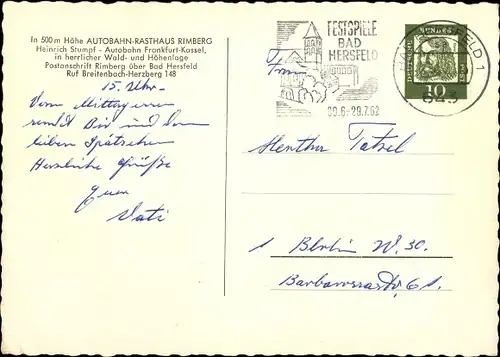 In 500 m Höhe AUTOBAHN-RASTHAUS RIMBERG
Heinrich Stumpf - Autobahn Frankfurt-Kassel,
in herrlicher Wald- und Höhenlage
Postanschrift Rimberg über Bad Hersfeld
Ruf Breitenbach-Herzberg 148
15. Uhr.
Vom Mittagessen
sendet Dir und dem
lieben Spätzchen
Herzliche Grüße
Euer
Vati
FESTSPIELE
BAD
HERSFELD
30.6-29.7.62
DEUTSCHE BUNDESPOST
10
643
Frau
Hertha Tatzel
1 Berlin W. 30.
Barbarossastr. 61.